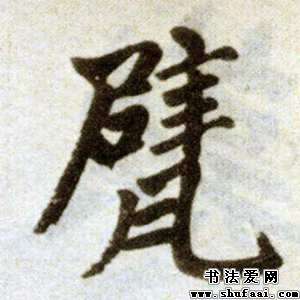 甓
书法爱网
www.shufaai.com